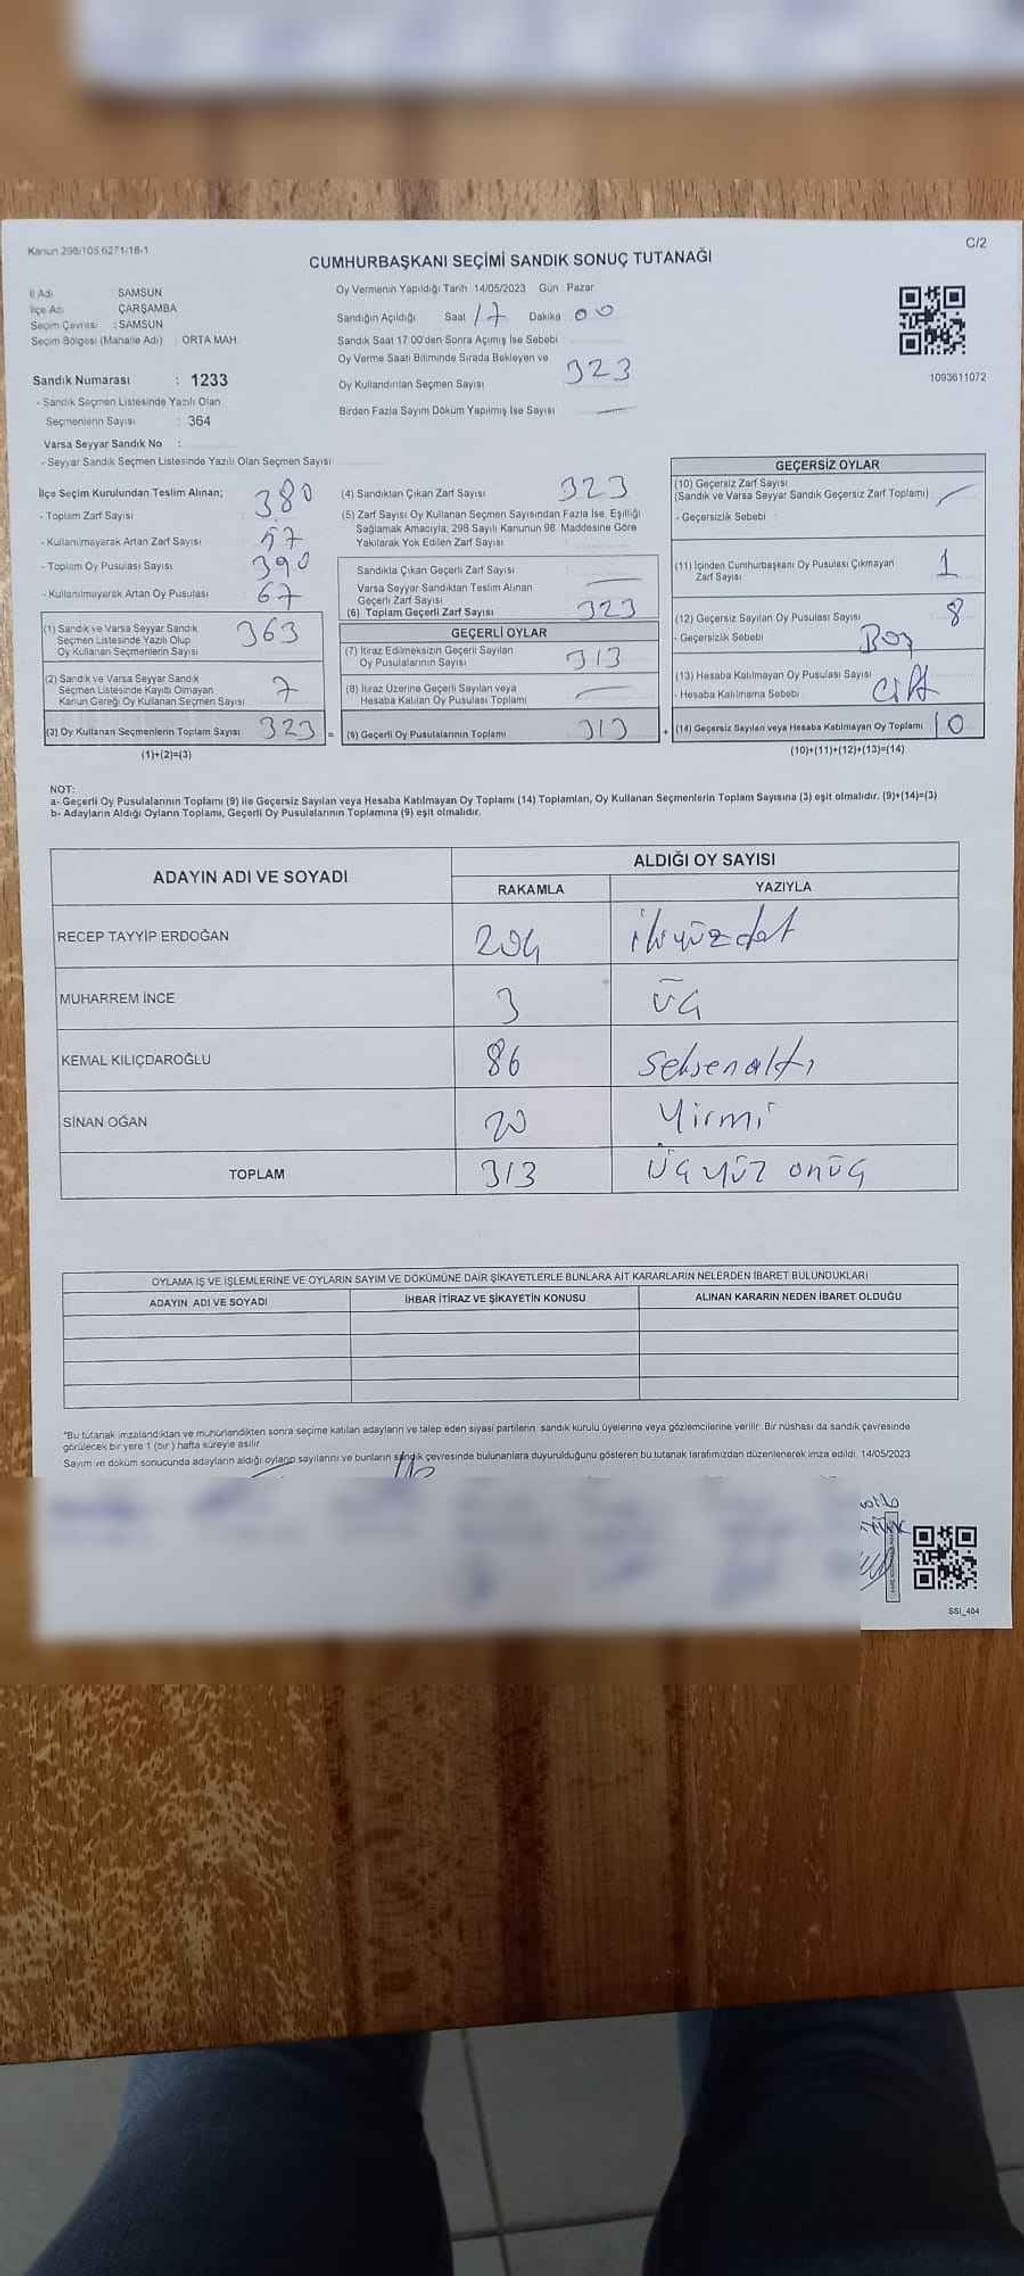 Kanun 298/105 6271/16-1
C/2
CUMHURBAŞKANI SEÇİMİ SANDIK SONUÇ TUTANAĞI
İl Adı SAMSUN
İlçe Adı ÇARŞAMBA
Seçim Çevresi : SAMSUN
Seçim Bölgesi (Mahalle Adı) : ORTA MAH.
Sandık Numarası : 1233
- Sandık Seçmen Listesinde Yazılı Olan
Seçmenlerin Sayısı : 364
Varsa Seyyar Sandık No :
- Seyyar Sandık Seçmen Listesinde Yazılı Olan Seçmen Sayısı
Oy Vermenin Yapıldığı Tarih 14/05/2023 Gün : Pazar
Sandığın Açıldığı Saat 17 Dakika 00
Sandık Saat 17:00'den Sonra Açımış İse Sebebi
Oy Verme Saati Bitiminde Sırada Bekleyen ve
Oy Kullandırılan Seçmen Sayısı 323
Birden Fazla Sayım Döküm Yapılmış İse Sayısı —
1093611072
İlçe Seçim Kurulundan Teslim Alınan;
- Toplam Zarf Sayısı 380
- Kullanılmayarak Artan Zarf Sayısı 57
- Toplam Oy Pusulası Sayısı 390
- Kullanılmayarak Artan Oy Pusulası 67
(1) Sandık ve Varsa Seyyar Sandık
Seçmen Listesinde Yazılı Olup
Oy Kullanan Seçmenlerin Sayısı 363
(2) Sandık ve Varsa Seyyar Sandık
Seçmen Listesinde Kayıtlı Olmayan
Kanun Gereği Oy Kullanan Seçmen Sayısı 7
(3) Oy Kullanan Seçmenlerin Toplam Sayısı 323 =
(1)+(2)=(3)
(4) Sandıktan Çıkan Zarf Sayısı 323
(5) Zarf Sayısı Oy Kullanan Seçmen Sayısından Fazla İse, Eşitliği
Sağlamak Amacıyla, 298 Sayılı Kanunun 98. Maddesine Göre
Yakılarak Yok Edilen Zarf Sayısı
Sandıkta Çıkan Geçerli Zarf Sayısı —
Varsa Seyyar Sandıktan Teslim Alınan
Geçerli Zarf Sayısı
(6) Toplam Geçerli Zarf Sayısı 323
GEÇERLİ OYLAR
(7) İtiraz Edilmeksizin Geçerli Sayılan
Oy Pusulalarının Sayısı 313
(8) İtiraz Üzerine Geçerli Sayılan veya
Hesaba Katılan Oy Pusulası Toplamı —
(9) Geçerli Oy Pusulalarının Toplamı 313 +
GEÇERSİZ OYLAR
(10) Geçersiz Zarf Sayısı
(Sandık ve Varsa Seyyar Sandık Geçersiz Zarf Toplamı) —
- Geçersizlik Sebebi
(11) İçinden Cumhurbaşkanı Oy Pusulası Çıkmayan
Zarf Sayısı 1
(12) Geçersiz Sayılan Oy Pusulası Sayısı 8
- Geçersizlik Sebebi Boş
(13) Hesaba Katılmayan Oy Pusulası Sayısı
- Hesaba Katılmama Sebebi Çift
(14) Geçersiz Sayılan veya Hesaba Katılmayan Oy Toplamı 10
(10)+(11)+(12)+(13)=(14)
NOT:
a- Geçerli Oy Pusulalarının Toplamı (9) ile Geçersiz Sayılan veya Hesaba Katılmayan Oy Toplamı (14) Toplamları, Oy Kullanan Seçmenlerin Toplam Sayısına (3) eşit olmalıdır. (9)+(14)=(3)
b- Adayların Aldığı Oyların Toplamı, Geçerli Oy Pusulalarının Toplamına (9) eşit olmalıdır.
ADAYIN ADI VE SOYADI
ALDIĞI OY SAYISI
RAKAMLA YAZIYLA
RECEP TAYYİP ERDOĞAN 204 ikiyüzdört
MUHARREM İNCE 3 üç
KEMAL KILIÇDAROĞLU 86 seksenaltı
SİNAN OĞAN 20 Yirmi
TOPLAM 313 üçyüz onüç
OYLAMA İŞ VE İŞLEMLERİNE VE OYLARIN SAYIM VE DÖKÜMÜNE DAİR ŞİKAYETLERLE BUNLARA AİT KARARLARIN NELERDEN İBARET BULUNDUKLARI
ADAYIN ADI VE SOYADI İHBAR İTİRAZ VE ŞİKAYETİN KONUSU ALINAN KARARIN NEDEN İBARET OLDUĞU
"Bu tutanak imzalandıktan ve mühürlendikten sonra seçime katılan adayların ve talep eden siyasi partilerin sandık kurulu üyelerine veya gözlemcilerine verilir. Bir nüshası da sandık çevresinde
görülecek bir yere 1 (bir) hafta süreyle asılır.
Sayım ve döküm sonucunda adayların aldığı oyların sayılarını ve bunların sandık çevresinde bulunanlara duyurulduğunu gösteren bu tutanak tarafımızdan düzenlenerek imza edildi. 14/05/2023
SSI_404